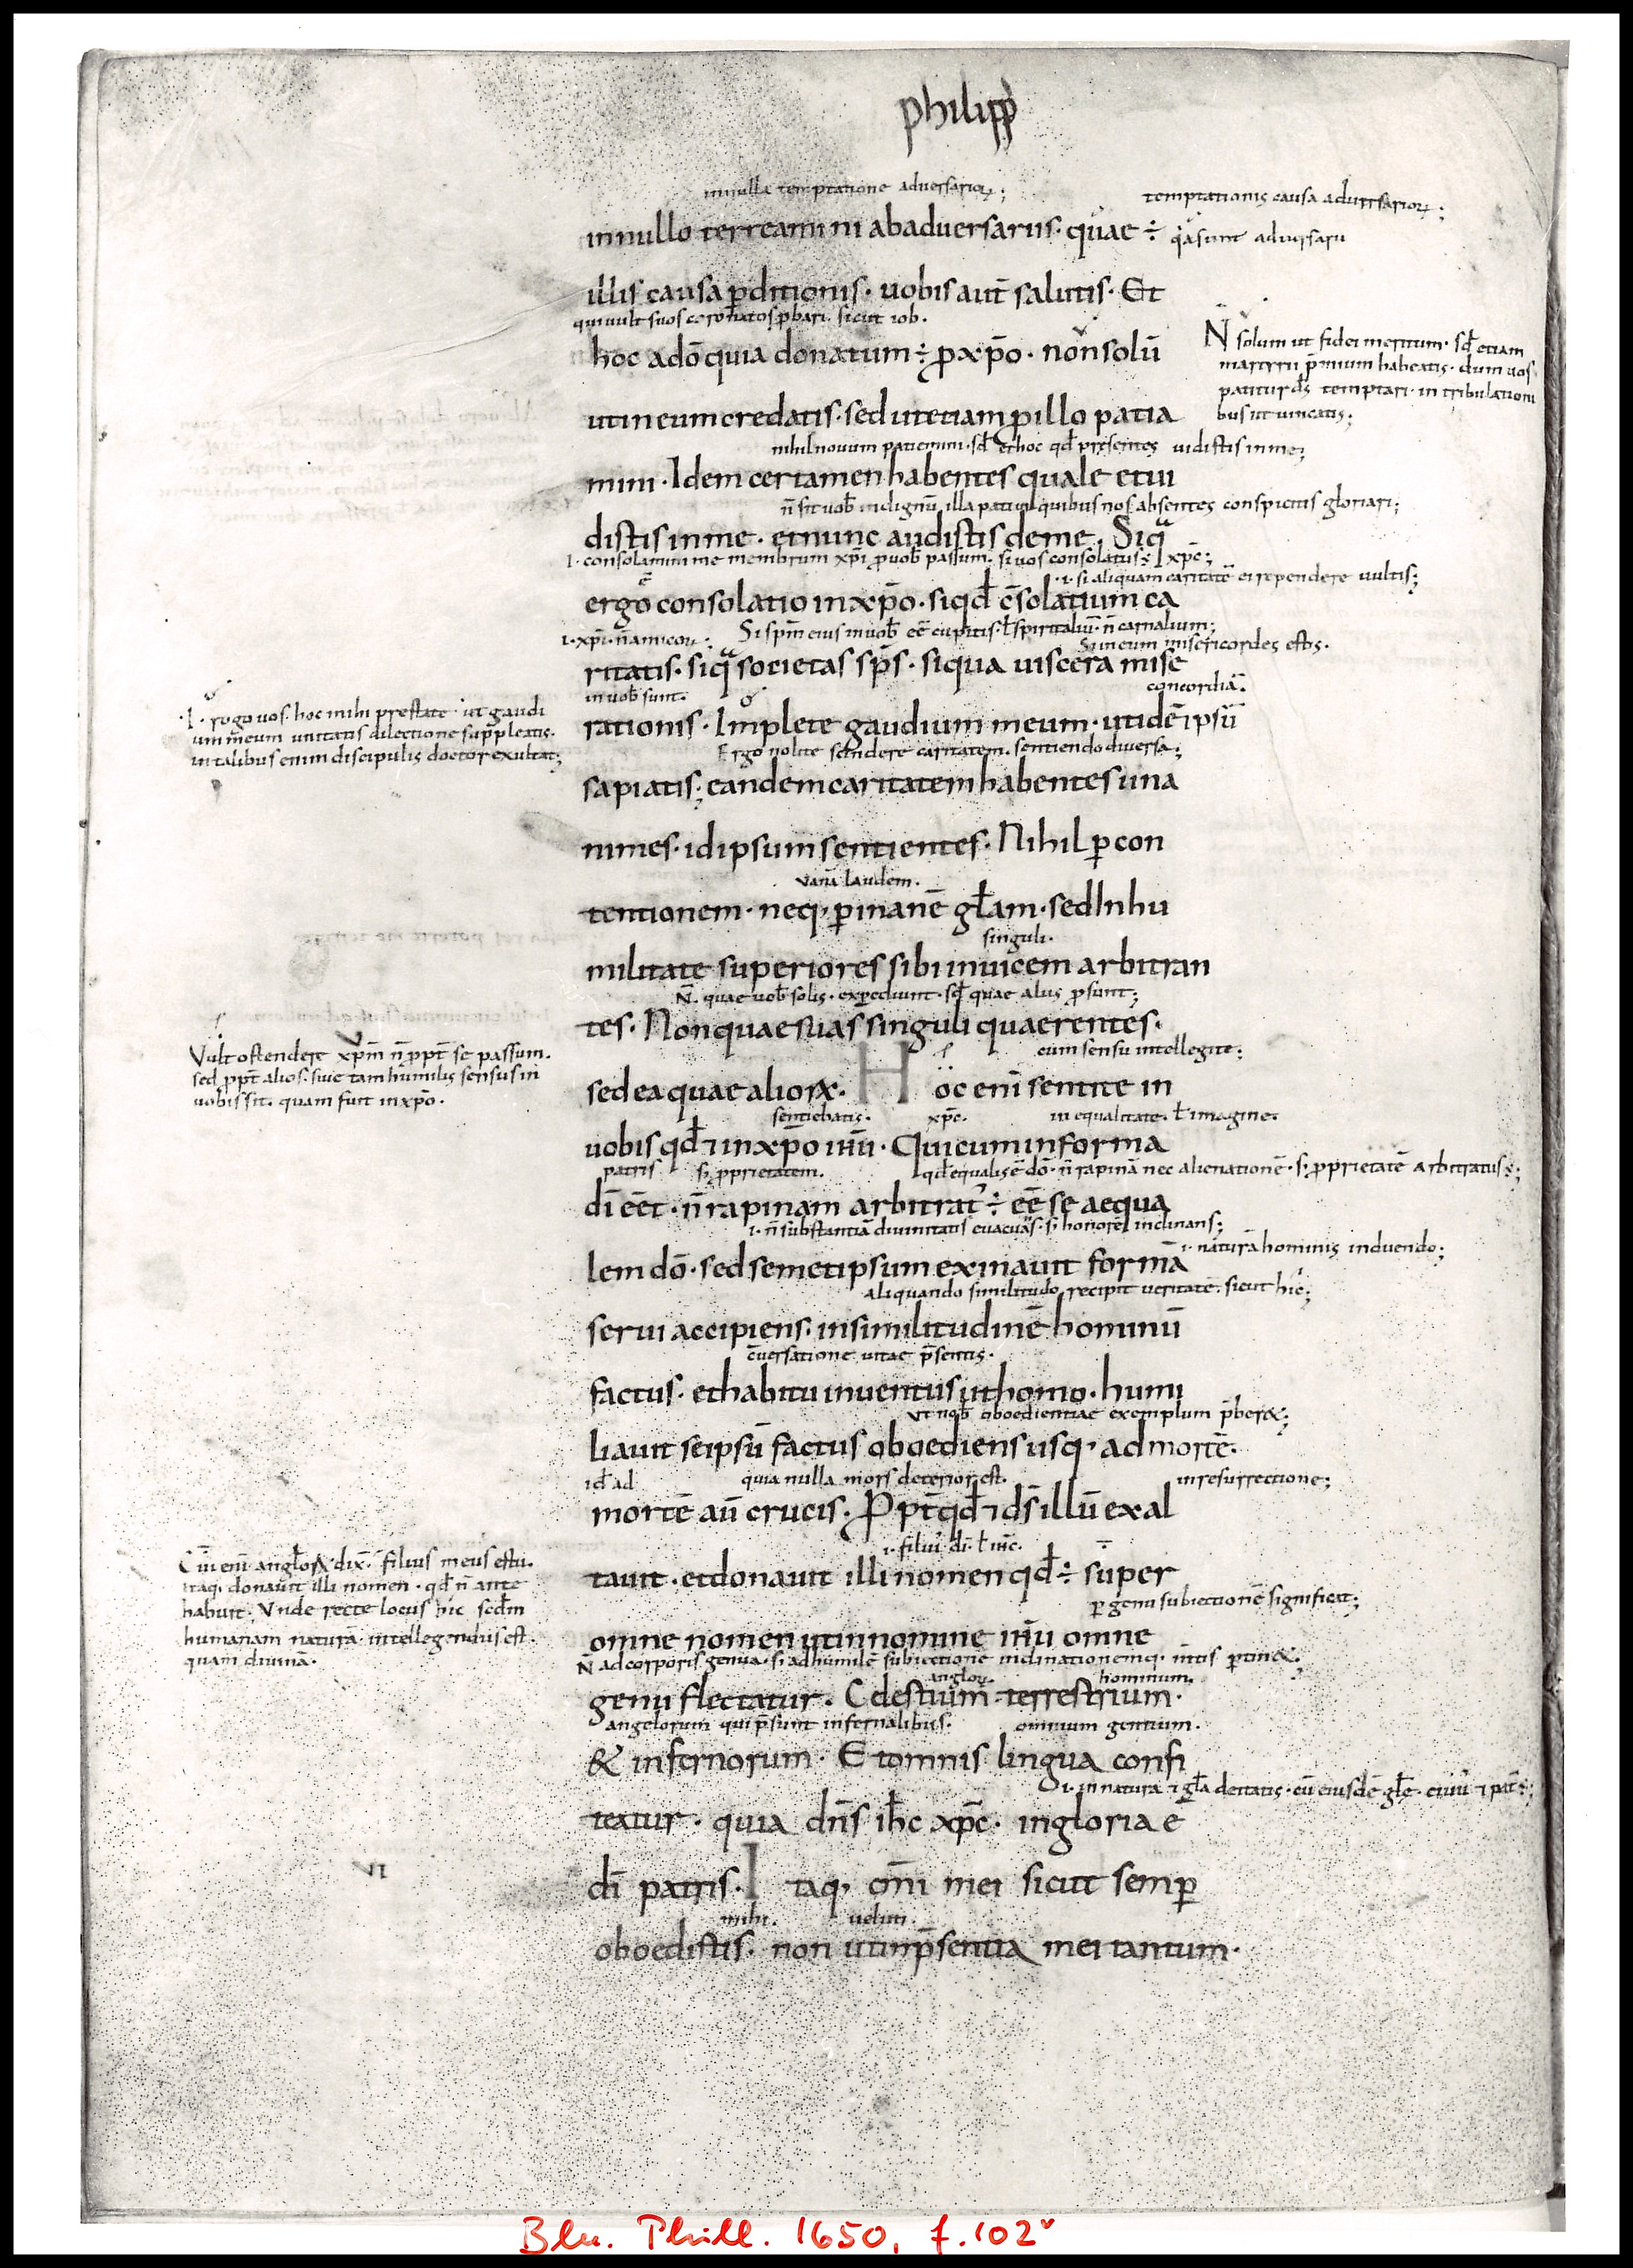 philipp̄
innulla temptatione adversarioꝝ;
temptationis causa adversarioꝝ;
innullo terreamini abadversariis· quae ÷
q̄a sunt adversarii
illis causa ꝑditionis· uobis aut̄ salutis· Et
qui uult suos coronatos ꝓbari sicut iob·
hoc adō quia donatum ÷ ꝓ xp̄o· non solū
N̄ solum ut fidei meritum· sꝺ̄ etiam
martyrii p̄mium habeatis· dum uos
patitur d̄s temptari· in tribulationi
bus ut uincatis;
utineum credatis· sed utetiam ꝓ illo patia
nihil nouum patiemini· sꝺ̄ et hoc qd̄ presentes uidistis in me;
mini· Idem certamen habentes quale etui
n̄ sit uob̄ indignū illa pati in quibus nos absentes conspicitis gloriari;
distis in me· et nunc audistis de me· Siqa
·I· consolamini me membrum xp̄i ꝓ uob̄ passum· si uos consolatus ÷ xp̄c;
·i· si aliquam caritatē ei rependere uultis;
ē
ergo consolatio in xp̄o· siqd̄ c̄solatium ca
·I· xp̄i· n̄ amicoꝝ·
Si sp̄m eius in uob̄ eē cupitis· ł spiritaliū· n̄ carnalium;
Si in eum misericordes estis·
ritatis· siqa societas sp̄s· siqua uiscera mise
in uob̄ sunt·
concordiā·
·I· rogo uos· hoc mihi prestate· ut gaudi
um meum unitatis dilectione suppleatis·
in talibus enim discipulis doctor exultat;
rationis· Implete gaudium meum· ut idē ipsū
Ergo nolite scindere caritatem· sentiendo diuersa;
sapiatis; eandem caritatem habentes una
nimes· id ipsum sentientes· Nihil ꝑ con
vana laudem·
tentionem· neq; ꝑ inanē gl̄am· sed In hu
singuli·
militate superiores sibi inuicem arbitran
N̄· quae uob̄ solis· expediunt· sꝺ̄ quae aliis ꝓsunt;
tes· Non quae suas singuli quaerentes·
Vult ostendere xp̄m n̄ ꝓpt̄ se passum·
sed ꝓpt̄ alios· siue tam humilis sensus in
uobis sit· quam fuit in xp̄o·
eum sensu intellegite;
sed ea quae alioꝝ· H oc eni sentite in
sentiebatis·
xp̄c·
in equalitate· ł imagine·
uobis qd̄ ⁊ in xp̄o ih̄u· Qui cum in forma
patris
s; ꝓprietatem·
qd̄ equalis ē dō· n̄ rapinā nec alienationē· s; ꝓprietatē Arbitratus ÷;
di eēt· n̄ rapinam arbitrat᾽ ÷ eē se aequa
·i· n̄ substantiā diuinitatis euacuās· s; honorē inclinans;
·i· naturā hominis induendo;
lem dō· sed semetipsum exinauit formā
Aliquando similitudo recipit ueritatē· sicut hic;
serui accipiens· in similitudinē hominū
c̄uersatione uitae p̄sentis·
factus· et habitu inuentus ut homo· humi
Vt nob̄ oboedientiae exemplum p̄ber&;
liauit seipsū factus oboediens usq; ad mortē·
id̄ ad
quia nulla mors deterior est·
in resurrectione;
mortē aū crucis· Ppt̄ qd̄ ⁊ d̄s illū exal
·i· filiū di ł ih̄c·
C̄ui eni angloꝝ dix̄· filius meus es tu·
itaq; donauit illi nomen· qd̄ n̄ ante
habuit; Vnde recte locus hic sedm
humanam naturā· intellegendus est·
quam diuinā·
tauit· et donauit illi nomen qd̄ ÷ super
ꝑ genu subiectionē significat;
omne nomen ut in nomine ih̄u omne
N̄ ad corporis genua· s; ad humilē subiectione inclinationemq; mtis ꝑtin&;
angloꝝ·
hominum·
genu flectatur· Celestium· terrestrium·
angelorum qui p̄sunt infernalibus·
omnium gentium·
& infernorum· Et omnis lingua confi
·i· in natura ⁊ gl̄a deitatis· cū eiusdē gl̄e
teatur· quia dn̄s ih̄c xp̄c· in gloria ē
VI
di patris· I taq; om̄i mei sicut semꝑ
mihi·
uelim·
oboedistis· non ut in p̄sentia mei tantum·
Bln. Phill. 1650, f. 102v